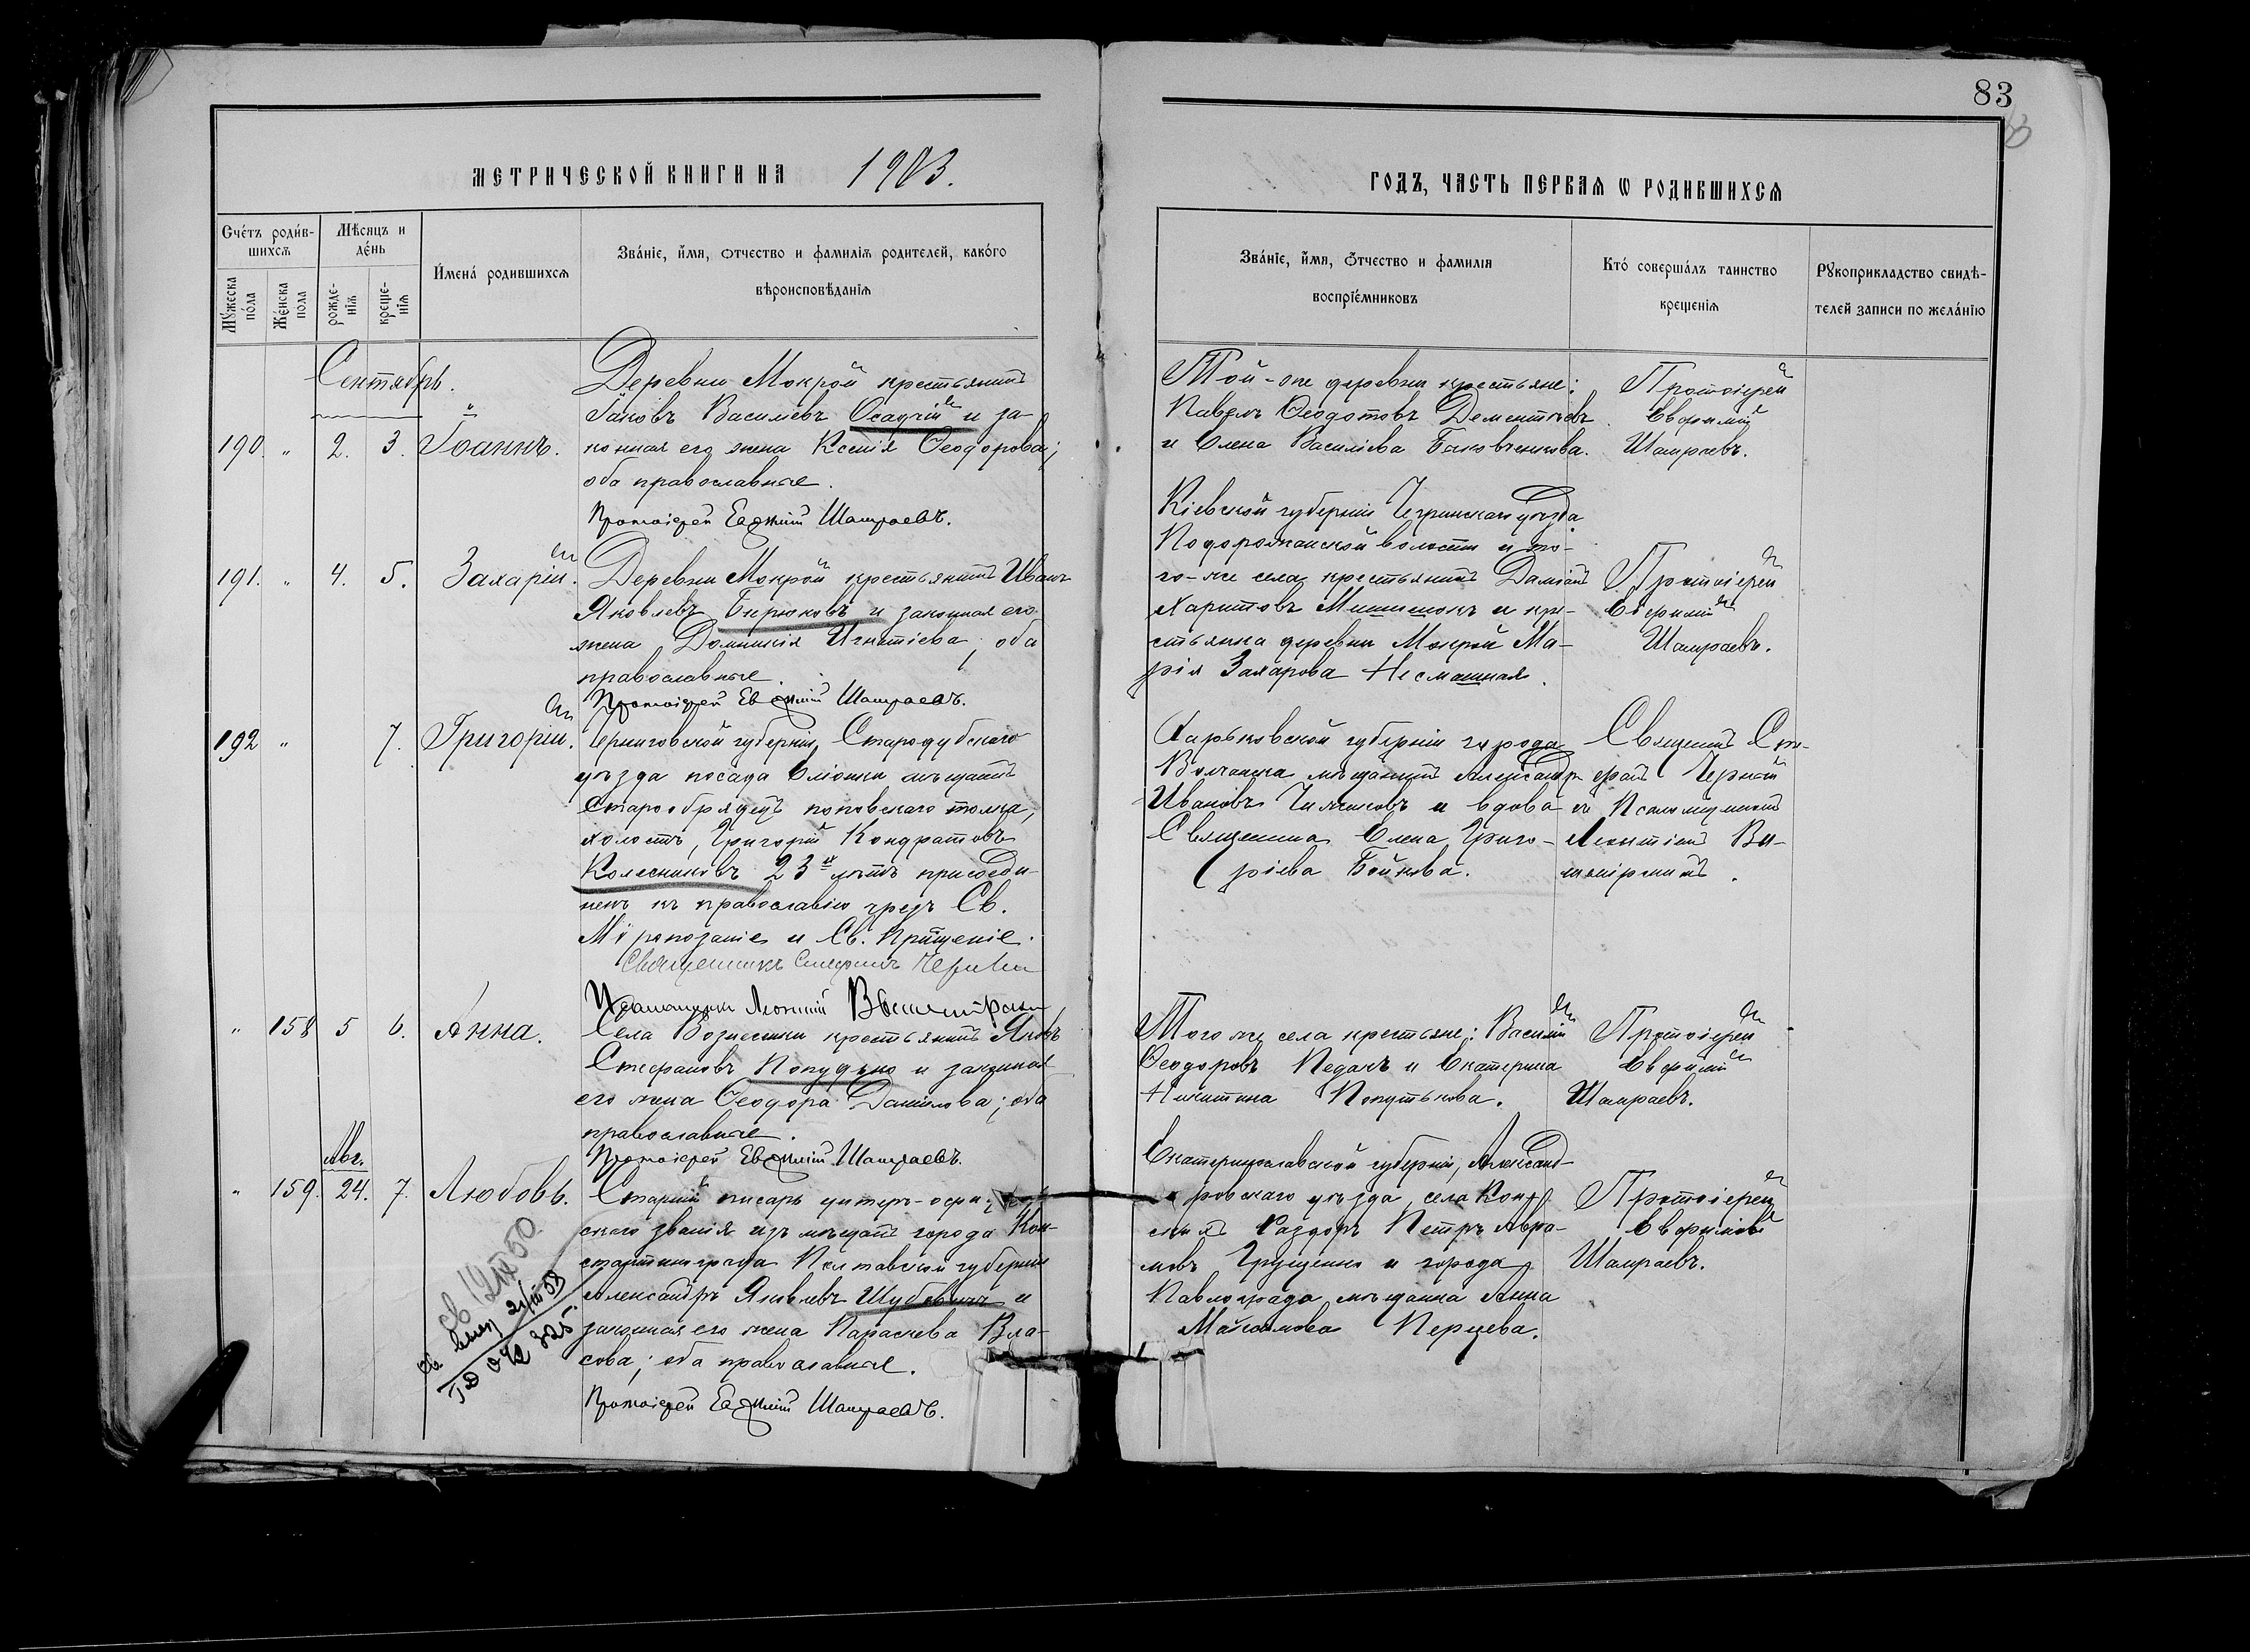 83
МЕТРИЧЕСКОЙ КНИГИ НА 1903.
ГОДЪ, ЧАСТЬ ПЕРВАѦ Ѡ РОДИВШИХСѦ
Счётъ родив-
шихсѧ
Мѣсяцъ и
де́нь
Мꙋжеска
по́ла
Же́нска
пола
рожде-
нїѧ
креще-
нїѧ
И҆мена́ родившихсѧ
Зва́нїе, и҆мя, ѻтчество и фамилїѧ родителей, како́го
вѣроисповѣданїѧ
Зва́нїе, и҆мя, ѻтчество и фамилїя
воспрїе́мниковъ
Кто́ соверша́лъ таинство
крещенїѧ
Рꙋкоприкладство свидѣ-
телей записи по жела́нїю
Сентябрь.
190. " 2. 3. Іоаннъ.
Деревни Мокрой крестьянинъ
Іаковъ Василіевъ Осадчій и за-
конная его жена Ксенія Ѳеодорова;
оба православные.
Протоіерей Евѳимій Шамраевъ.
Той-же деревни крестьяне:
Павелъ Ѳеодотовъ Дементьевъ
и Елена Василіева
Протоіерей
Евфимій
Шамраевъ.
191. " 4. 5. Захарій.
Деревни Мокрой крестьянинъ Иванъ
Яковлевъ Бирюковъ и законная его
жена Домникія Игнатіева; оба
православные.
Протоіерей Евѳимій Шамраевъ.
Кіевской губерніи уѣзда
волости и то-
го-же села крестьянинъ Даміанъ
Харитовъ и кре-
стьянка деревни Мокрой Ма-
рія Захарова Несмашная.
Протоіерей
Евфимій
Шамраевъ.
192 " 7. Григорій.
Черниговской губерніи, Стародубскаго
уѣзда посада мѣщанинъ
старообрядецъ поповскаго толка,
холостъ, Григорій Кондратовъ
Колесниковъ 23х лѣтъ присоеди-
ненъ къ православію чрезъ Св.
Мѵропозаніе и Св. Прищеніе.
Священникъ
Псаломщикъ Леонтій
Харьковской губерніи города
Волчанска мѣщанинъ Александръ
Ивановъ и вдова
Священника Елена Григо-
ріева Бойкова.
Священникъ Сте-
фанъ Черный
съ Псаломщикомъ
Леонтіемъ
" 158 5 6. Анна.
Села Вознесенки крестьянинъ Яковъ
Стефановъ Попудько и законная
его жена Ѳеодора Даніилова; оба
православные.
Протоіерей Евѳимій Шамраевъ.
Того же села крестьяне: Василій
Ѳеодоровъ Педачъ и Екатерина
Никитина Попутькова.
Протоіерей
Евфимій
Шамраевъ.
Авг.
" 159. 24. 7. Любовь.
Старшій писарь унтеръ-офи-
скаго званія изъ мѣщанъ города Кон-
стантинграда Полтавской губерніи
Александръ Яковлевъ и
законная его жена Параскева Вла-
сова; оба православные.
Протоіерей Евѳимій Шамраевъ.
Екатеринославской губерніи, Александ-
ровскаго уѣзда, села
Раздоръ Петръ Авра-
мовъ Грущенко и города
Павлограда мѣщанка Анна
Максимова Перцева.
Протоіерей
Евфимій
Шамраевъ.